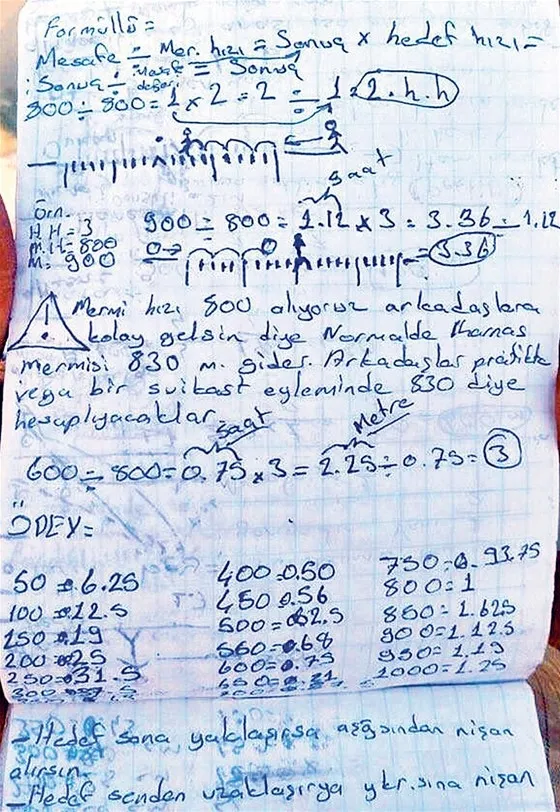 Formüllü =
Mesafe ÷ Mer. hızı = Sonuç x hedef hızı =
: Sonuç ÷ Mesafe değeri = Sonuç
800 ÷ 800 = 1 x 2 = 2 ÷ 1 = 2.h.h
saat
Örn.
H H = 3
M.H = 800
M = 900
900 ÷ 800 = 1.12 x 3 = 3.36 ÷ 1.12
= 3.36
Mermi hızı 800 alıyoruz arkadaşlara
kolay gelsin diye Normalde Kannas
mermisi 830 m. gider. Arkadaşlar pratikte
veya bir suikast eyleminde 830 diye
hesaplıyacaklar
saat
Metre
600 ÷ 800 = 0.75 x 3 = 2.25 ÷ 0.75 = 3
ÖDEV =
50 = 6.25
100 = 12.5
150 = 19
200 = 25
250 = 31.5
400 = 0.50
450 = 0.56
500 = 62.5
550 = 0.68
600 = 0.75
750 = 0.93.75
800 = 1
850 = 1.625
900 = 1.125
950 = 1.19
1000 = 1.25
- Hedef sana yaklaşırsa aşğsından nişan
alırsın.
- Hedef senden uzaklaşırya ykr.sına nişan